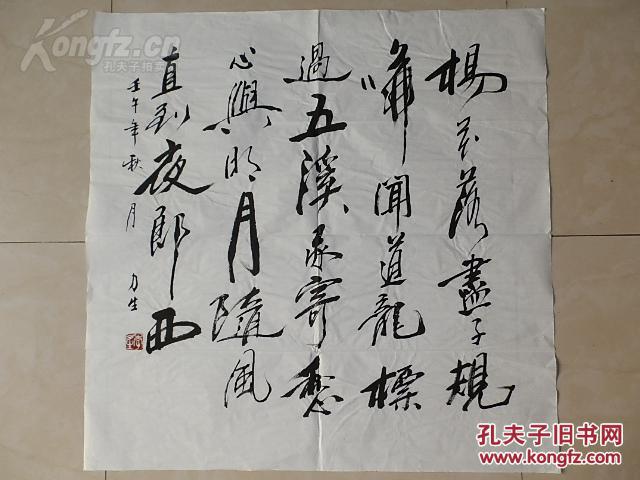 楊花落盡子規
啼聞道龍標
過五溪我寄愁
心與明月隨風
直到夜郎西
壬午年秋月 力生
Kongfz.com
孔夫子拍卖
孔夫子旧书网
www.kongfz.com